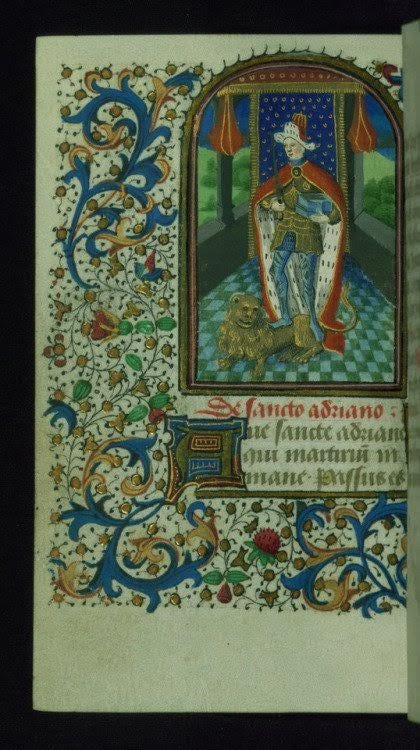 De sancto adriano :
Aue sancte adriane
qui martiriū in
mane passus es